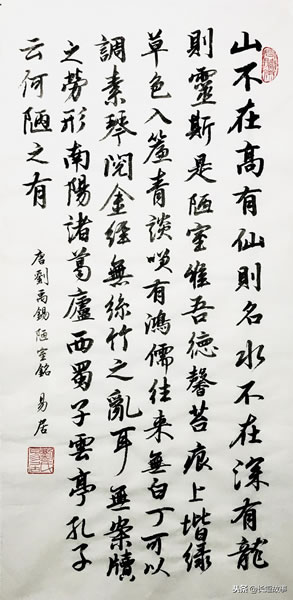 山不在高有仙則名水不在深有龍
則靈斯是陋室惟吾德馨苔痕上堦綠
草色入簾青談笑有鴻儒往来無白丁可以
調素琴閱金經無絲竹之亂耳無案牘
之勞形南陽諸葛廬西蜀子雲亭孔子
云何陋之有
唐劉禹錫陋室銘 易居
头条 @